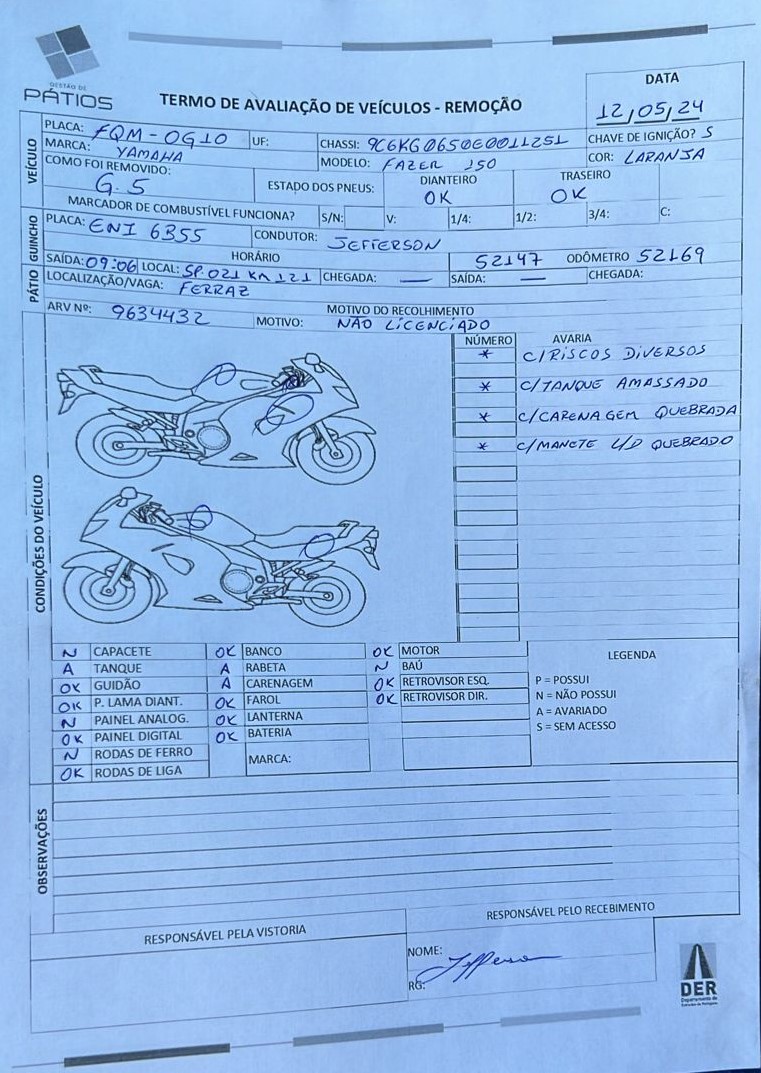 GESTÃO DE
PÁTIOS
TERMO DE AVALIAÇÃO DE VEÍCULOS - REMOÇÃO
DATA
12/05/24
VEÍCULO
PLACA: FQM-0G10 UF: CHASSI: 9C6KG0650E0011251 CHAVE DE IGNIÇÃO? S
MARCA: YAMAHA MODELO: FAZER 250 COR: LARANJA
COMO FOI REMOVIDO: G.5 ESTADO DOS PNEUS: DIANTEIRO OK TRASEIRO OK
MARCADOR DE COMBUSTÍVEL FUNCIONA? S/N: V: 1/4: 1/2: 3/4: C:
GUINCHO
PLACA: ENI 6355 CONDUTOR: JEFFERSON
HORÁRIO 52147 ODÔMETRO 52169
SAÍDA: 09:06 LOCAL: SP.021 KM 121 CHEGADA: — SAÍDA: — CHEGADA:
PÁTIO
LOCALIZAÇÃO/VAGA: FERRAZ
ARV Nº: 9634432 MOTIVO DO RECOLHIMENTO
MOTIVO: NÃO LICENCIADO
CONDIÇÕES DO VEÍCULO
NÚMERO AVARIA
* C/RISCOS DIVERSOS
* C/TANQUE AMASSADO
* C/CARENAGEM QUEBRADA
* C/MANETE L/D QUEBRADO
N CAPACETE OK BANCO OK MOTOR
A TANQUE A RABETA N BAÚ
OK GUIDÃO A CARENAGEM OK RETROVISOR ESQ.
OK P. LAMA DIANT. OK FAROL OK RETROVISOR DIR.
N PAINEL ANALOG. OK LANTERNA
OK PAINEL DIGITAL OK BATERIA
N RODAS DE FERRO MARCA:
OK RODAS DE LIGA
LEGENDA
P = POSSUI
N = NÃO POSSUI
A = AVARIADO
S = SEM ACESSO
OBSERVAÇÕES
RESPONSÁVEL PELA VISTORIA
RESPONSÁVEL PELO RECEBIMENTO
NOME: Jefferson
RG:
DER
Departamento de
Estradas de Rodagem